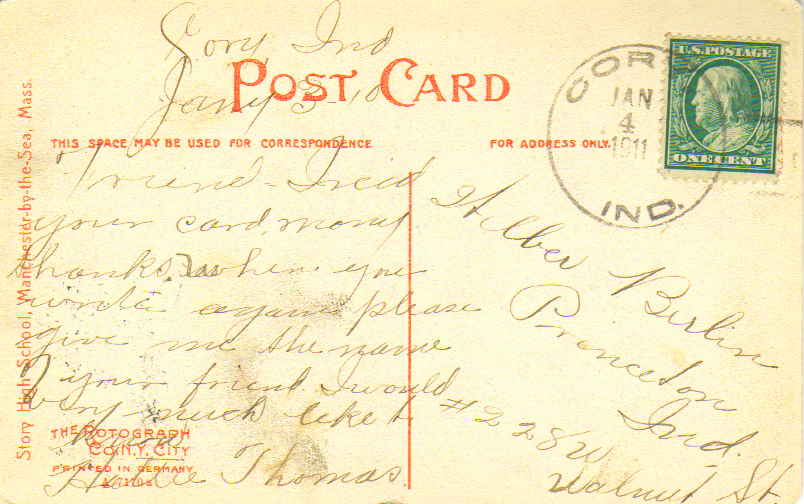 Cory, Ind
Jany 3-10
POST CARD
THIS SPACE MAY BE USED FOR CORRESPONDENCE
FOR ADDRESS ONLY.
Friend - Recd
your card, many
thanks, when you
write again please
give me the name
of your friend. I would
very much like to
know
Thomas.
Wilber Berlin
Princeton
Ind.
#228 W.
Walnut St.
U.S. POSTAGE
ONE CENT
COR
JAN
4
1911
IND.
Story High School, Manchester-by-the-Sea, Mass.
THE ROTOGRAPH
CO. N.Y. CITY
PRINTED IN GERMANY